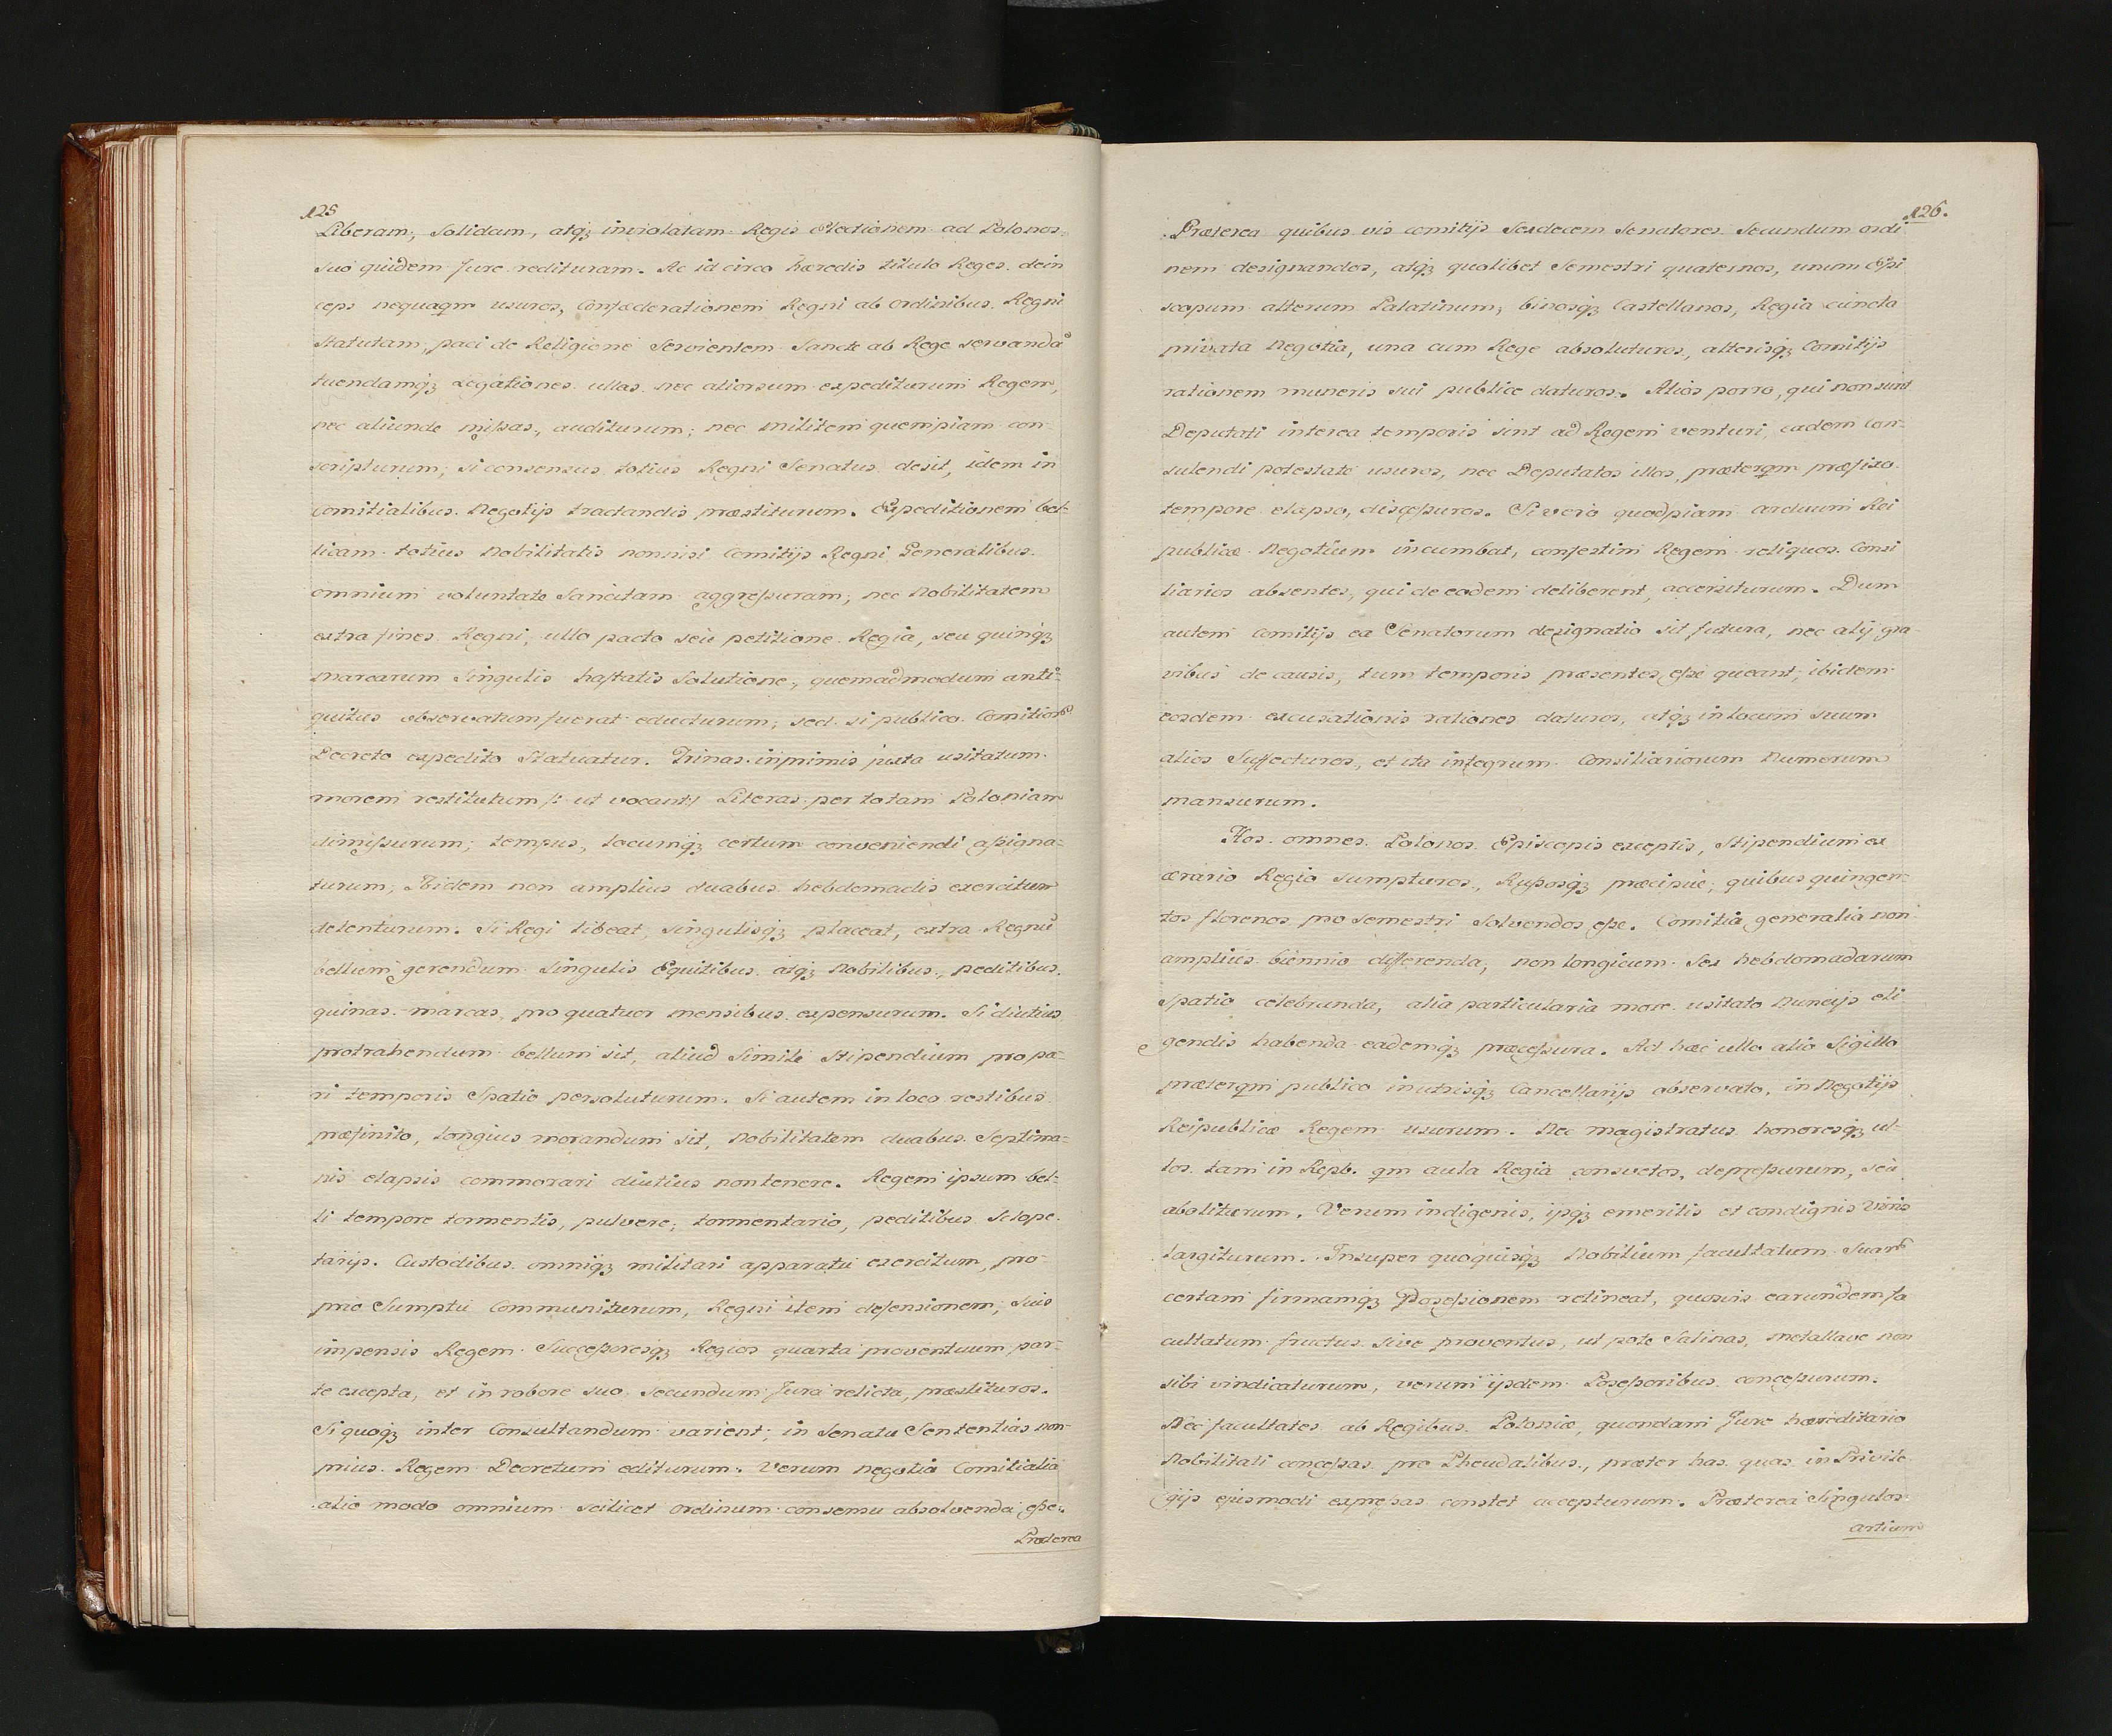 125
Liberam, Solidam, atqz inviolatam Regis Electionem ad Polonos
suo quidem Jure redituram. Ac id circo hæredis titulo Reges dein
ceps nequaqm usuros, Confæderationem Regni ab ordinibus Regni
Statutam, paci de Religione Servientem Sancte ab Rege servandã
tuendamqz Legationes ullas nec aliorsum expediturum Regem,
nec aliunde missas, auditurum; nec militem quempiam con
scripturum, si consensus totius Regni Senatus desit, idem in
Comitialibus Negotijs tractandis præstiturum. Expeditionem bel-
licam totius Nobilitatis nonnisi Comitijs Regni Generalibus
omnium voluntate Sancitam aggressuram, nec Nobilitatem
extra fines Regni, ullo pacto seù petitione Regiâ, seu quinqz
marcarum Singulis hastatis Solutione, quemadmodum anti-
quitus observatum fuerat educturum; sed si publico Comitiorũ
Decreto expedito Statuatur. Trinas inprimis juxta usitatum
morem restitutum /: ut vocant:/ Literas per totam Poloniam
dimissurum; tempus, locumqz certum conveniendi assigna-
turum, Ibidem non amplius duabus hebdomadis exercitum
detenturum. Si Regi libeat, singulisqz placeat, extra Regnũ
bellum gerendum Singulis Equitibus atqz Nobilibus, peditibus
quinas marcas, pro quatuor mensibus expensurum. Si diutius
protrahendum bellum sit, aliud Simile Stipendium pro pa-
ri temporis Spatio persoluturum. Si autem in loco restibus
præfinito, longius morandum sit, Nobilitatem duabus Septima-
nis elapsis commorari diutius non tenere. Regem ipsum bel-
li tempore tormentis, pulvere, tormentario, peditibus Sclope-
tarijs. Custodibus omniqz militari apparatu exercitum, pro-
prio Sumptu Communiturum, Regni item defensionem, suis
impensis Regem Successoresqz Regios quarta proventuum par-
te excepta, et in robore suo, secundum Jura relicta, præstituros.
Si quoqz inter Consultandum varient, in Senatu Sententias non-
prius Regem Decretum editurum. Verum negotia Comitialia
alio modo omnium scilicet ordinum consensu absolvenda esse.
Præterea
126.
Præterea quibus vis comitijs Sexdecem Senatores Secundum ordi
nem designandos, atqz quolibet Semestri quaternos, unum Epi
scopum alterum Palatinum, binosqz Castellanos, Regia cuncta
privata Negotia, una cum Rege absoluturos, alterisqz Comitijs
rationem muneris sui publice daturos. Alios porro, qui non sunt
Deputati interea temporis sint ad Regem venturi, eadem Con-
sulendi potestate usuros, nec Deputatos illos, præterqm præfixo
tempore elapso, discessuros. Si vero quodpiam arduum Rei
publicæ Negotium incumbat, confestim Regem reliquos Consi
liarios absentes, qui de eodem deliberent, accersiturum. Dum
autem Comitijs ea Senatorum designatio sit futura, nec alij gra
vibus de causis, tum temporis præsentes esse queant, ibidem
eosdem excusationis rationes daturos, atqz in locum suum
alios Suffecturos, et ita integrum Consiliariorum Numerum
mansurum.
Hos omnes Polonos Episcopis exceptis, Stipendium ex
ærario Regio sumpturos, Russosqz præcipuè, quibus quingen-
tos florenos pro semestri Solvendos esse. Comitia generalia non
amplius biennio differenda, non longicum Sex hebdomadarum
Spatio celebranda, alia particularia more usitato Nuncijs eli
gendis habenda eademqz præcessura. Ad hæc ullo alio Sigillo
præterqm publico inutrisqz Cancellarijs observato, in Negotijs
Reipublicæ Regem usurum. Nec magistratus honoresqz ul-
los tam in Repb. qm aula Regia consuetos, depressurum, seù
aboliturum. Verum indigenis, ijsqz emeritis et condignis viris
largiturum. Insuper quoquisqz Nobilium facultatum Suarũ
certam firmamqz Possessionem retineat, quosvis earundem fa
cultatum fructus sive proventus, ut pote Salinas, metallave non
sibi vindicaturum, verum ijsdem Possessoribus concessurum.
Nec facultates ab Regibus Poloniæ, quondam Jure hæreditario
Nobilitati concessas pro Pheudalibus, præter has quas in Privile
gijs ejusmodi expressas constet accepturum. Præterea Singulos
artium